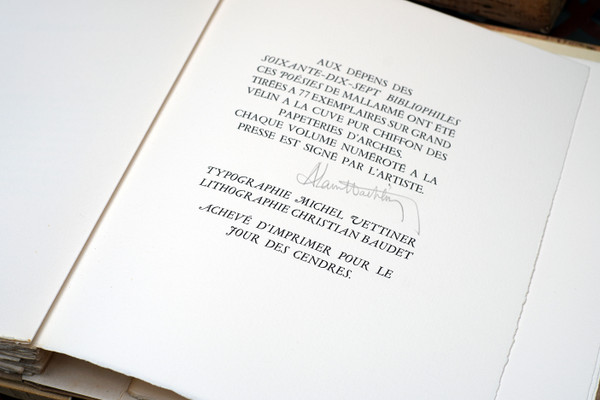 AUX DÉPENS DES
SOIXANTE-DIX-SEPT BIBLIOPHILES
CES POÉSIES DE MALLARMÉ ONT ÉTÉ
TIRÉES A 77 EXEMPLAIRES SUR GRAND
VÉLIN A LA CUVE PUR CHIFFON DES
PAPETERIES D'ARCHES.
CHAQUE VOLUME NUMÉROTÉ A LA
PRESSE EST SIGNÉ PAR L'ARTISTE.
TYPOGRAPHIE MICHEL VETTINER
LITHOGRAPHIE CHRISTIAN BAUDET
ACHEVÉ D'IMPRIMER POUR LE
JOUR DES CENDRES.